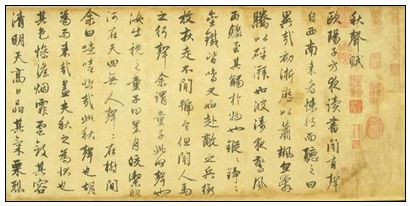 秋聲賦
歐陽子方夜讀書聞有聲
自西南来者悚然而聽之曰
異哉初淅瀝以蕭颯忽奔
騰以砰湃如波濤夜驚風
雨驟至其觸於物也鏦〻錚〻
金鐵皆鳴又如赴敵之兵銜
枚疾走不聞號令但聞人馬
之行聲余謂童子此何聲也
汝出視之童子曰星月皎潔明
河在天四無人聲〻在樹間
余曰噫嘻悲哉此秋聲也胡
為而来哉蓋夫秋之為狀也
其色慘淡煙霏雲斂其容
清明天高日晶其氣栗冽